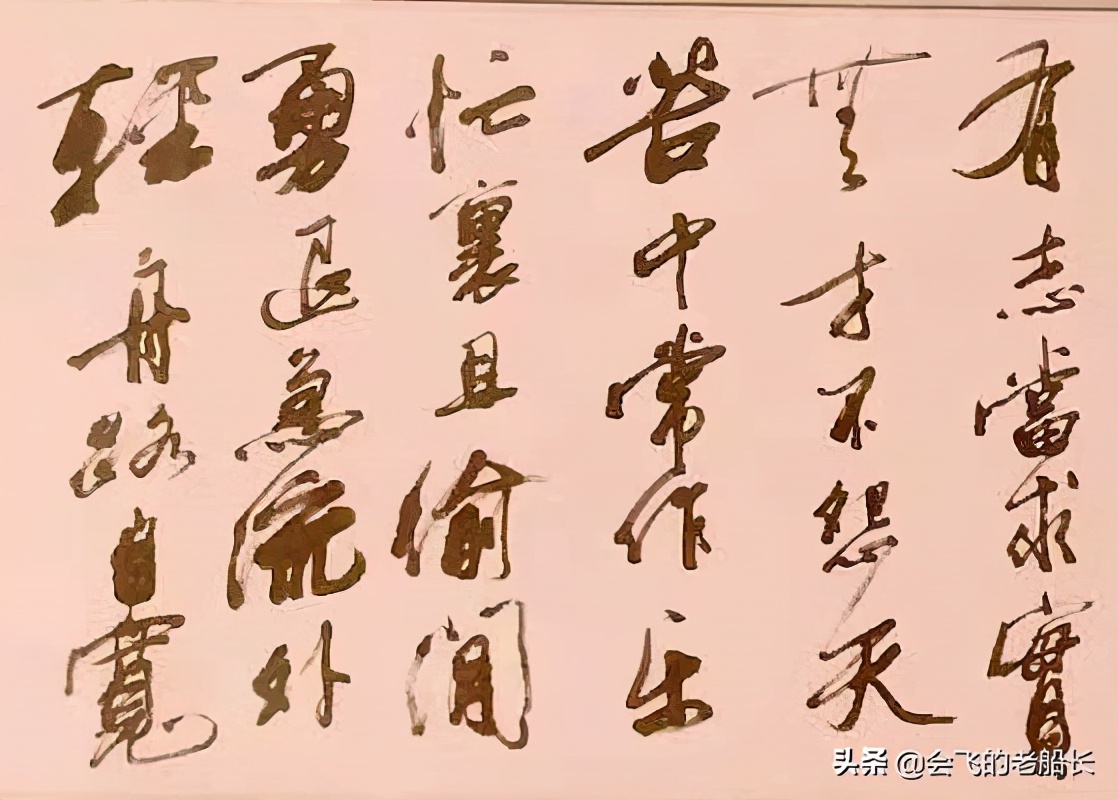 有志當求實
無才不怨天
苦中常作乐
忙裏且偷閒
勇退急流外
輕舟路自寬
头条 @会飞的老船长